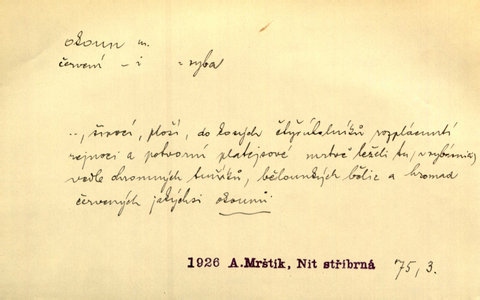 okoun m.
červení – i – ryba
.., širocí, ploší, do kosých čtyřúhelníků rozplácnutí
rejnoci a potvorní platejsové mrtvě leželi tu, v rybárnici,
vedle ohromných tuňáků, bělounkých bělic a hromad
červených jakýchsi okounů.
1926 A.Mrštík, Nit stříbrná 75, 3.